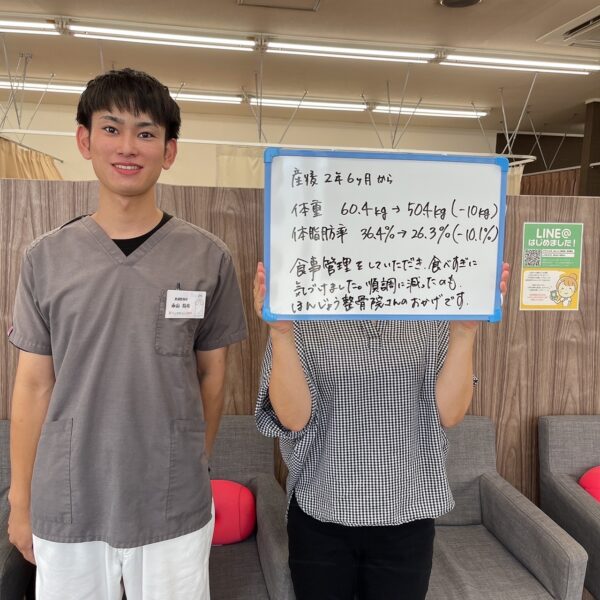 産後2年6ヶ月から
体重 60.4kg→50.4kg(-10kg)
体脂肪率 36.4%→26.3%(-10.1%)
食事管理をしていただき、食べすぎに
気づけました。順調に減ったのも、
ほんじょう整骨院さんのおかげです。
LINE@
はじめました!